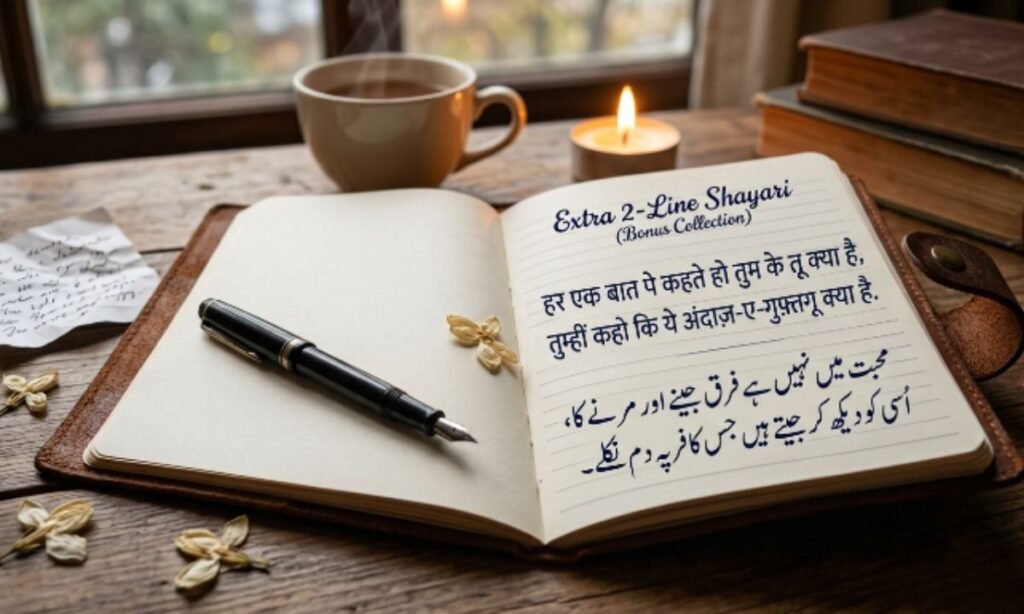 Extra 2-Line Shayari
(Bonus Collection)
हर एक बात पे कहते हो तुम के तू क्या है,
तुम्हीं कहो कि ये अंदाज़-ए-गुफ़्तगू क्या है.
محبت میں نہیں ہے فرق جینے اور مرنے کا،
اُسی کو دیکھ کر جیتے ہیں جس کافر پہ دم نکلے۔